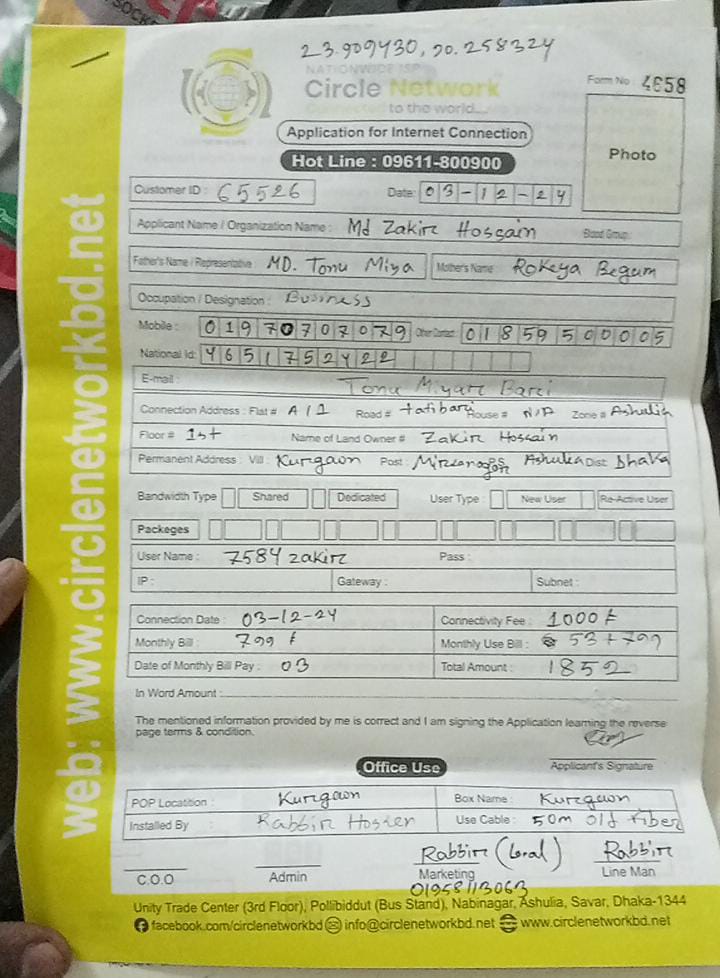 SOCKE
23.909430, 90.258324
NATIONWIDE ISP
Circle Network
Connected to the world....
Form No : 4658
Application for Internet Connection
Hot Line : 09611-800900
Photo
Customer ID : 65526 Date: 03-12-24
Applicant Name / Organization Name : Md Zakir Hossain Blood Group:
Father's Name / Representative : MD. Tonu Miya Mother's Name : Rokeya Begum
Occupation / Designation : Business
Mobile : 01970707079 Other Contact: 01859500005
National Id: 4651752422
E-mail : Tonu Miyar Bari
Connection Address : Flat # A/1 Road # tatibari House # N/A Zone # Ashulia
Floor # 1st Name of Land Owner # Zakir Hossain
Permanent Address : Vill : Kurgaon Post : PS Ashulia Dist: Dhaka
Bandwidth Type Shared Dedicated User Type : New User Re-Active User
Packeges
User Name : 7584 zakir Pass :
IP : Gateway : Subnet :
Connection Date : 03-12-24 Connectivity Fee : 1000 ৳
Monthly Bill : 799 ৳ Monthly Use Bill : 53+799
Date of Monthly Bill Pay : 03 Total Amount : 1852
In Word Amount :
The mentioned information provided by me is correct and I am signing the Application learning the reverse
page terms & condition.
Applicant's Signature
Office Use
POP Locattion : Kurgaon Box Name : Kurgaon
Installed By : Rabbir Hosien Use Cable : 50m old fiber
Rabbir (Local) Rabbir
C.O.O Admin Marketing Line Man
01958113063
Unity Trade Center (3rd Floor), Pollibiddut (Bus Stand), Nabinagar, Ashulia, Savar, Dhaka-1344
facebook.com/circlenetworkbd info@circlenetworkbd.net www.circlenetworkbd.net
web: www.circlenetworkbd.net